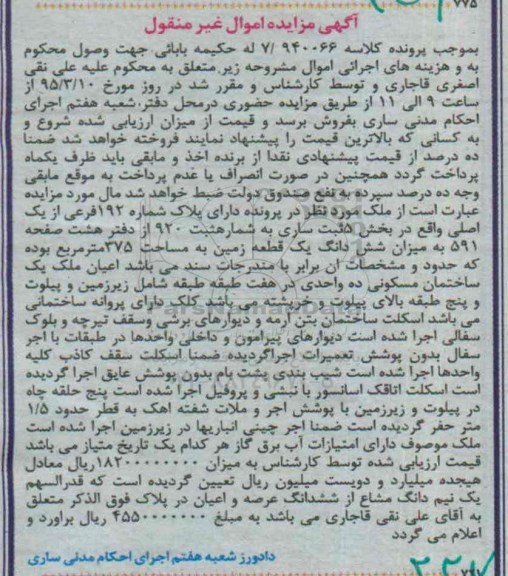 ۷۷۵
آگهی مزایده اموال غیر منقول
بموجب پرونده کلاسه ۹۴۰۰۶۶ /۷ له حکیمه بابائی جهت وصول محکوم
به و هزینه های اجرائی اموال مشروحه زیر متعلق به محکوم علیه علی نقی
اصغری قاجاری و توسط کارشناس و مقرر شد در روز مورخ ۹۵/۳/۱۰ از
ساعت ۹ الی ۱۱ از طریق مزایده حضوری درمحل دفتر شعبه هفتم اجرای
احکام مدنی ساری بفروش برسد و قیمت از میزان ارزیابی شده شروع و
به کسانی که بالاترین قیمت را پیشنهاد نمایند فروخته خواهد شد ضمنا
ده درصد از قیمت پیشنهادی نقدا از برنده اخذ و مابقی باید ظرف یکماه
پرداخت گردد همچنین در صورت انصراف یا عدم پرداخت به موقع مابقی
وجه ده درصد سپرده به نفع صندوق دولت ضبط خواهد شد مال مورد مزایده
عبارت است از ملک مورد نظر در پرونده دارای پلاک شماره ۱۹۲فرعی از یک
اصلی واقع در بخش ۵ثبت ساری به شمارهثبت ۹۲۰ از دفتر هشت صفحه
۵۹۱ به میزان شش دانگ یک قطعه زمین به مساحت ۳۷۵مترمربع بوده
که حدود و مشخصات آن برابر با مندرجات سند می باشد اعیان ملک یک
ساختمان مسکونی ده واحدی در هفت طبقه طبقه شامل زیرزمین و پیلوت
و پنج طبقه بالای پیلوت و خرپشته می باشد کلک دارای پروانه ساختمانی
می باشد اسکلت ساختمان بتن ارمه و دیوارهای برشی وسقف تیرچه و بلوک
سفالی اجرا شده است دیوارهای پیرامون و داخلی واحدها در طبقات با اجر
سفال بدون پوشش تعمیرات اجراگردیده ضمنا اسکلت سقف کاذب کلیه
واحدها اجرا شده است شیب بندی پشت بام بدون پوشش عایق اجرا گردیده
است اسکلت اتاقک اسانسور با نبشی و پروفیل اجرا شده است پنج حلقه چاه
در پیلوت و زیرزمین با پوشش اجر و ملات شفته اهک به قطر حدود ۱/۵
متر حفر گردیده است ضمنا اجر چینی انباریها در زیرزمین اجرا شده است
ملک موصوف دارای امتیازات آب برق گاز هر کدام یک تاریخ متیاز می باشد
قیمت ارزیابی شده توسط کارشناس به میزان ۱۸۲۰۰۰۰۰۰۰۰ریال معادل
هیجده میلیارد و دویست میلیون ریال تعیین گردیده است که قدرالسهم
یک نیم دانگ مشاع از ششدانگ عرصه و اعیان در پلاک فوق الذکر متعلق
به آقای علی نقی قاجاری می باشد به مبلغ ۴۵۵۰۰۰۰۰۰۰ ریال براورد و
اعلام می گردد
دادورز شعبه هفتم اجرای احکام مدنی ساری